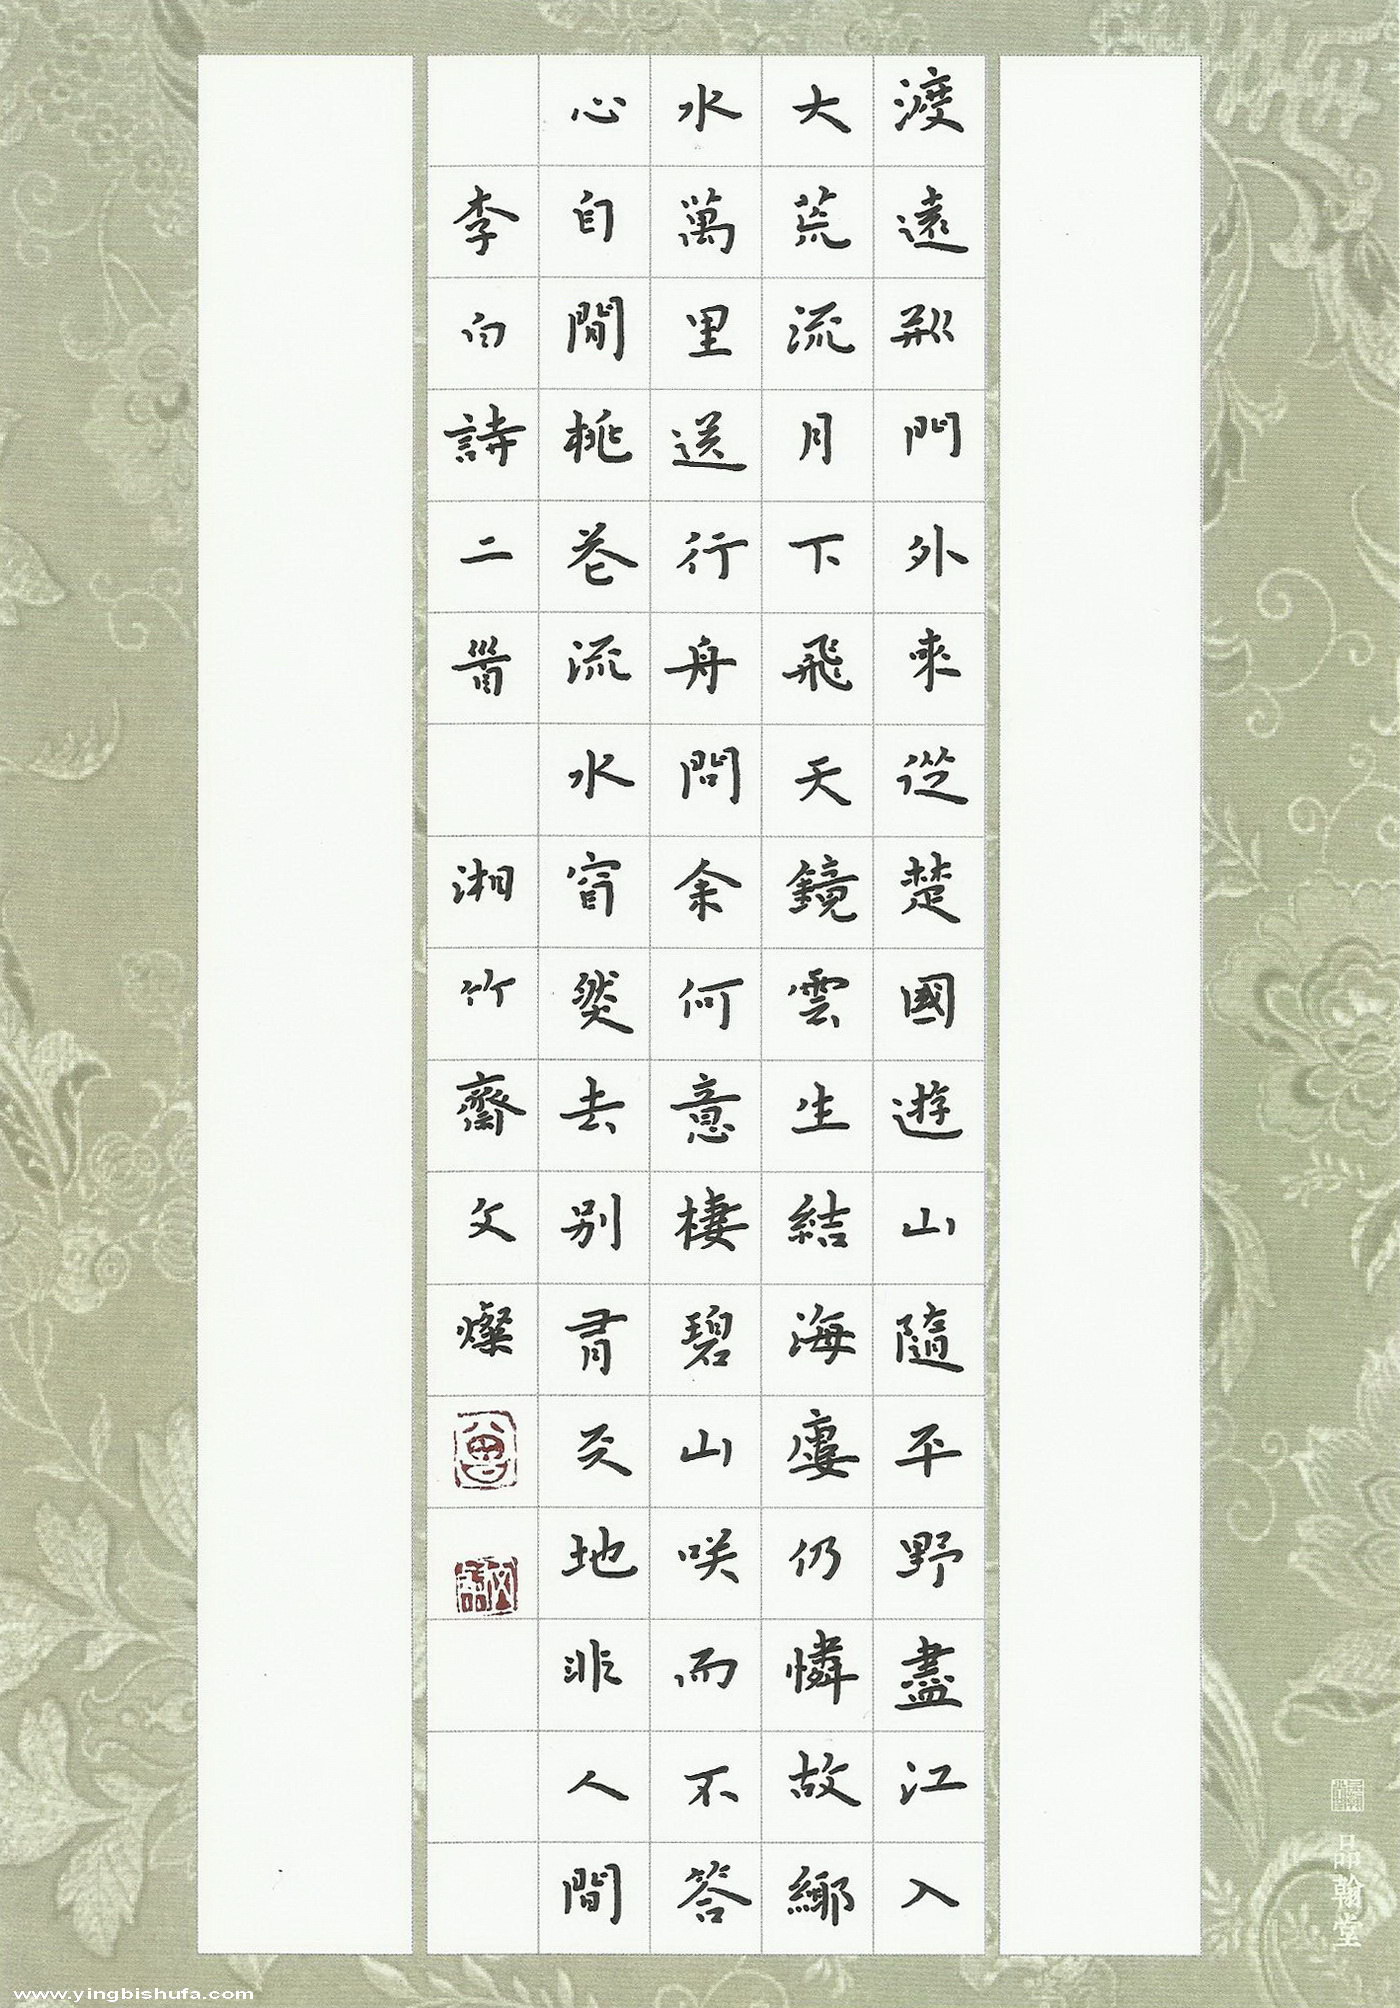 渡遠荊門外來從楚國遊山隨平野盡江入
大荒流月下飛天鏡雲生結海廔仍憐故鄉
水萬里送行舟問余何意棲碧山咲而不答
心自閒桃花流水窅然去別有天地非人間
李白詩二首 湘竹齋文燦
品翰堂
www.yingbishufa.com